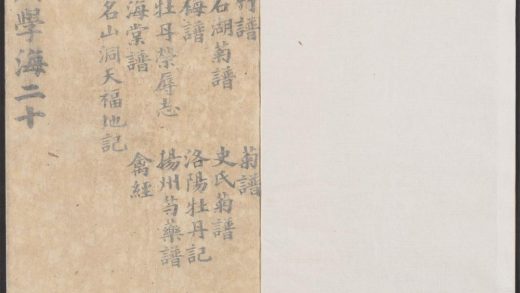 竹譜 菊譜
石湖菊譜 史氏菊譜
梅譜 洛陽牡丹記
牡丹榮辱志 揚州芍藥譜
海棠譜 禽經
名山洞天福地記
學海二十